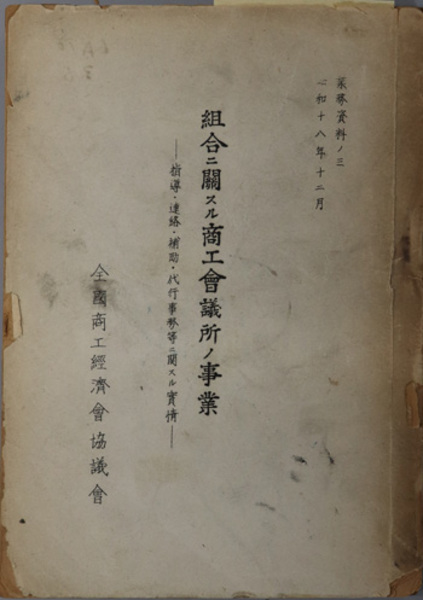 業務資料ノ三
昭和十八年十二月
組合ニ關スル商工會議所ノ事業
――指導・連絡・補助・代行事務等ニ關スル實情――
全國商工經濟會協議會